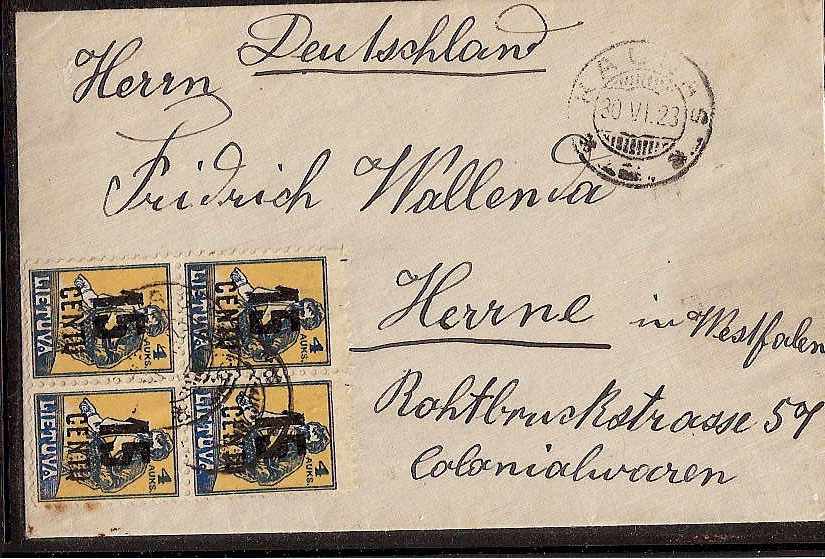 Deutschland
Herrn
Fridrich Wallenda
Herrne in Westfalen
Rohtbruckstrasse 57
Colonialwaren
KAUNAS
30 VI.23
LIETUVA
15
CENTŲ
4
AUKS.
LIETUVA
15
CENTŲ
4
AUKS.
LIETUVA
15
CENTŲ
4
AUKS.
LIETUVA
15
CENTŲ
4
AUKS.